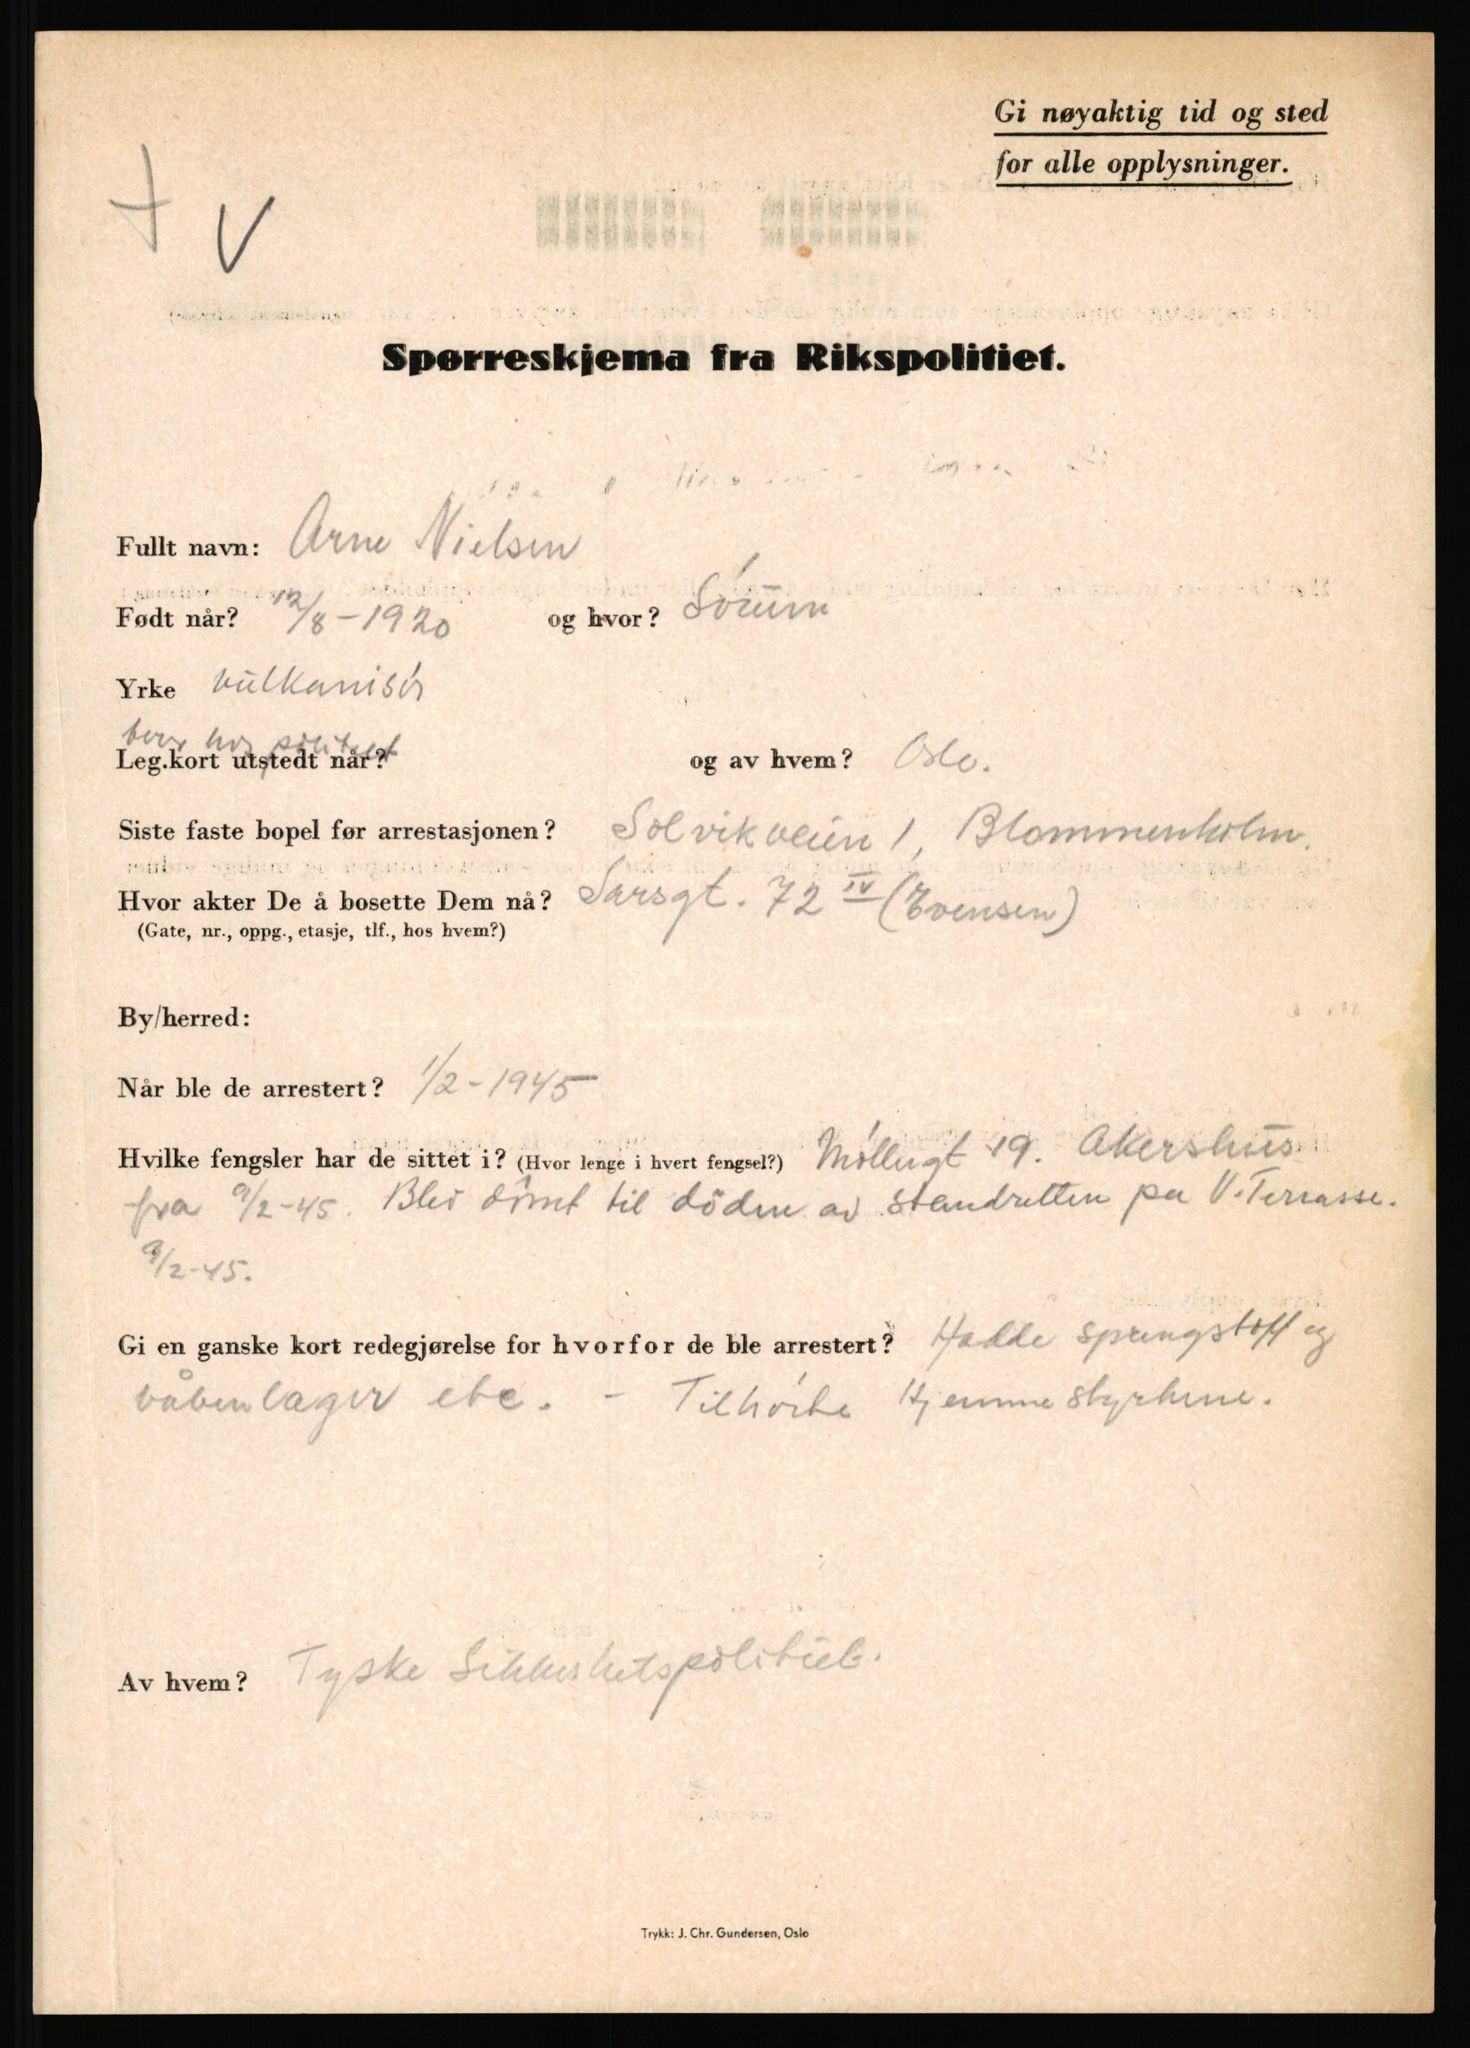 Gi nøyaktig tid og sted
for alle opplysninger.
V
Spørreskjema fra Rikspolitiet.
Fullt navn: Arne Nielsen
Født når? 12/8-1920 og hvor? Sörum
Yrke vulkanisör
hos politiet
Leg.kort utstedt når? og av hvem? Oslo.
Siste faste bopel før arrestasjonen? Solvikveien 1, Blommenholm.
Hvor akter De å bosette Dem nå? Sarsgt. 72 IV (Evensen)
(Gate, nr., oppg., etasje, tlf., hos hvem?)
By/herred:
Når ble de arrestert? 1/2-1945
Hvilke fengsler har de sittet i? (Hvor lenge i hvert fengsel?) Möllergt 19. Akershus
fra 9/2-45. Blev dömt til döden av standretten på V. Terrasse.
9/2-45.
Gi en ganske kort redegjørelse for hvorfor de ble arrestert? Hadde sprengstoff og
våbenlager etc. - Tilhörte Hjemmestyrkene.
Av hvem? Tyske Sikkerhetspolitiet.
Trykk: J. Chr. Gundersen, Oslo